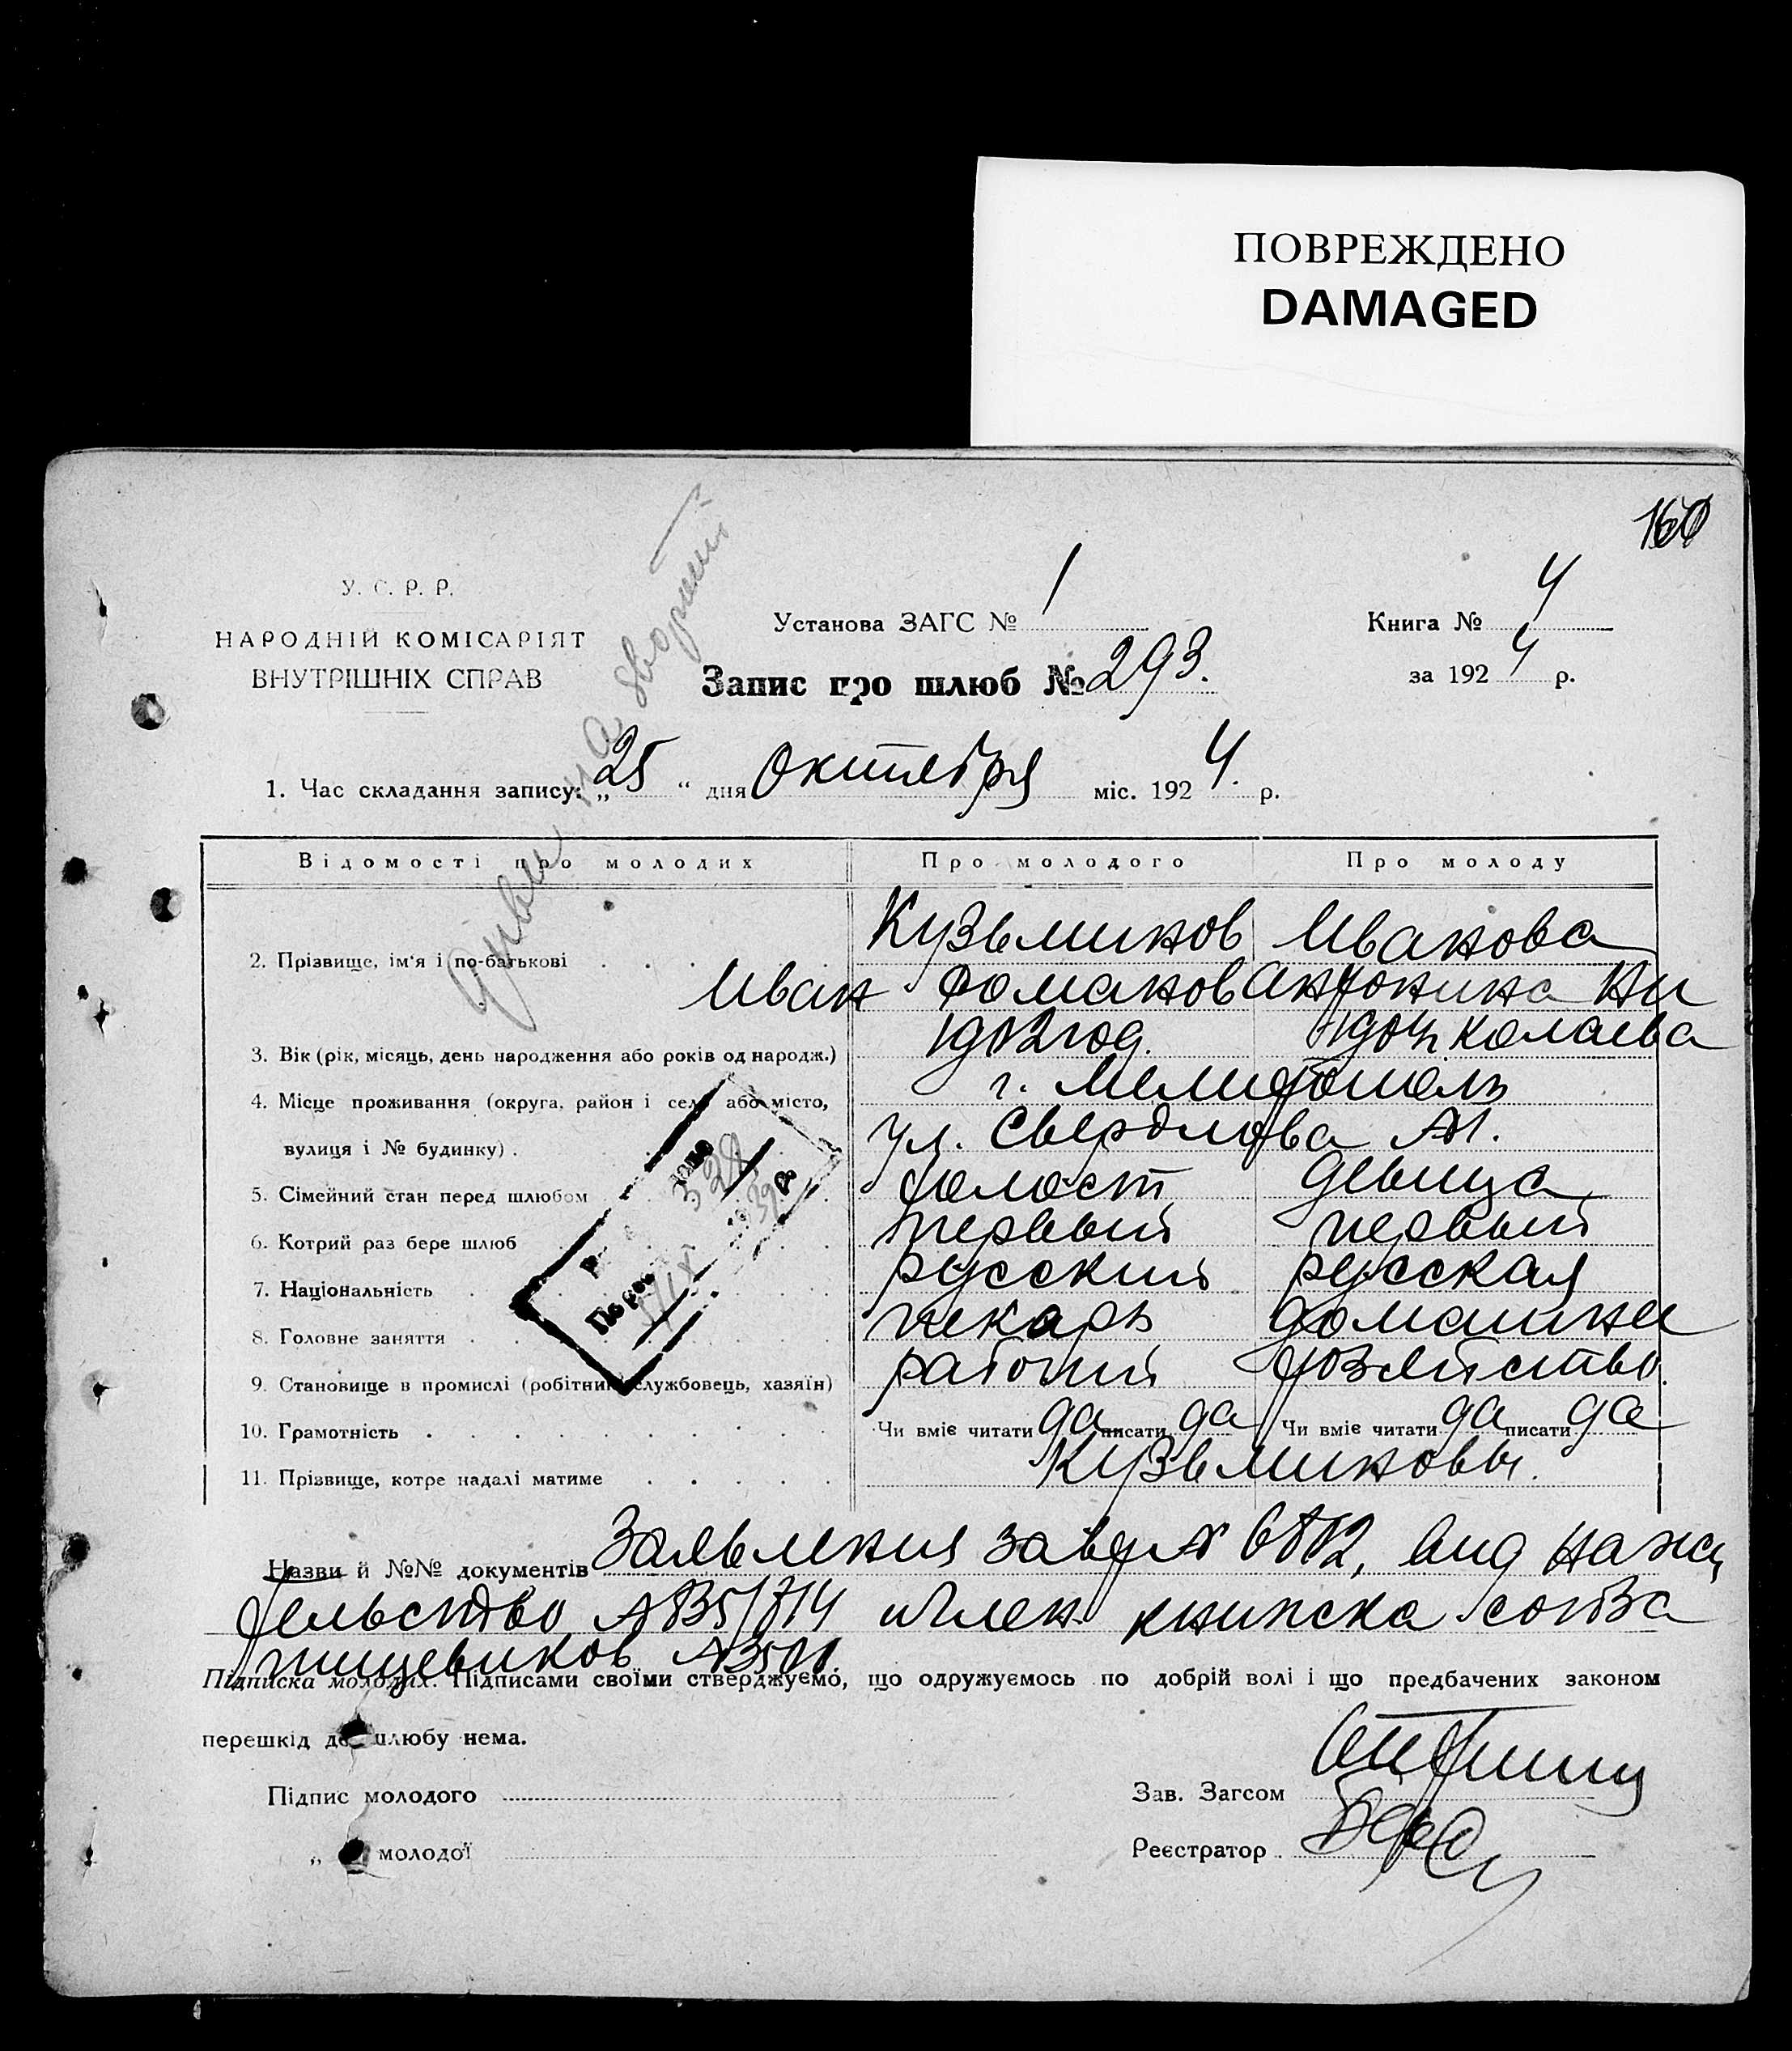 ПОВРЕЖДЕНО
DAMAGED
160
У. С. Р. Р.
НАРОДНІЙ КОМІСАРІЯТ
ВНУТРІШНІХ СПРАВ
Установа ЗАГС № 1
Книга № 4
Запис про шлюб № 293.
за 1924 р.
дивись на звороті
1. Час складання запису: „25" дня октября міс. 1924. р.
Відомості про молодих Про молодого Про молоду
2. Прізвище, ім'я і по-батькові Кузьминов Иванова
Иван Романов Антонина Ни
колаева
3. Вік (рік, місяць, день народження або років од народж.) 1902 год. 1904
4. Місце проживання (округа, район і село або місто, г. Мелитополь
вулиця і № будинку) ул. Свердлова
5. Сімейний стан перед шлюбом холост девица
6. Котрий раз бере шлюб первый первый
7. Національність русский русская
8. Головне заняття пекарь домашнее
9. Становище в промислі (робітник, службовець, хазяїн) рабочий хозяйство.
10. Грамотність Чи вміє читати да писати да Чи вміє читати да писати да
11. Прізвище, котре надалі матиме Кузьминовы.
Назви й №№ документів Заявления вид на жи
тельство член книжка союза
пищевиков
Підписка молодих. Підписами своїми стверджуємо, що одружуємось по добрій волі і що предбачених законом
перешкід до шлюбу нема.
Підпис молодого Зав. Загсом
„ молодої Реєстратор